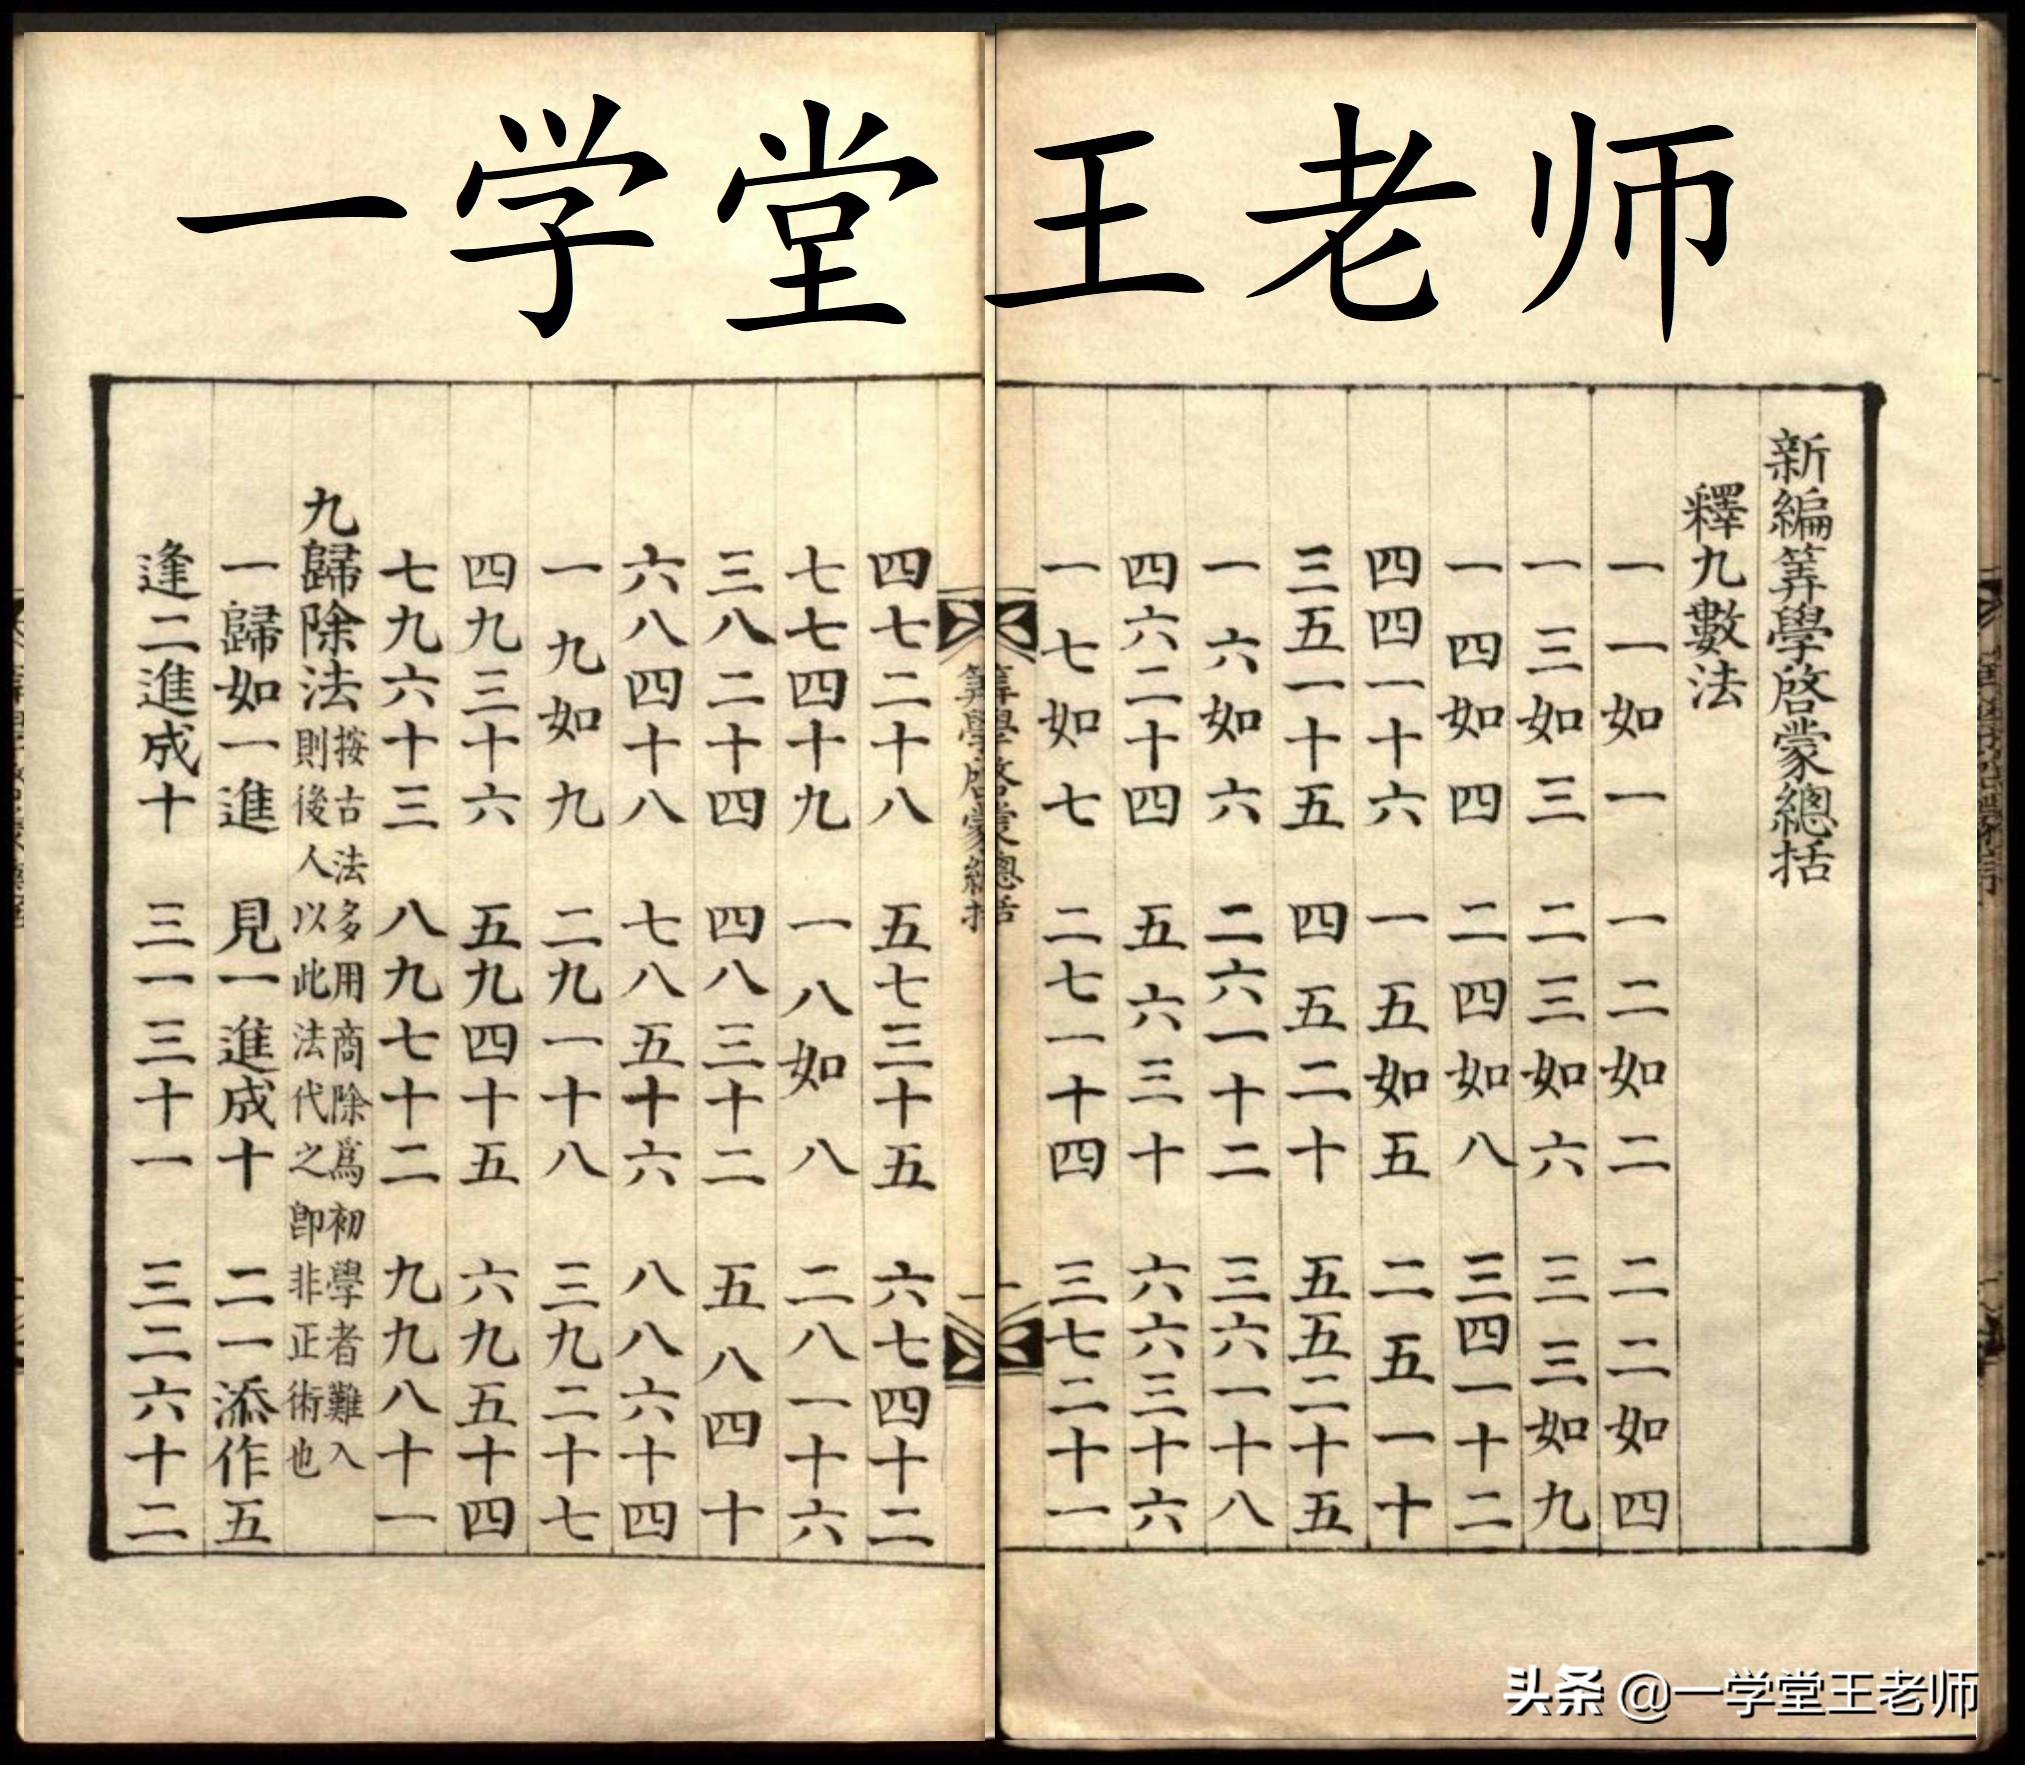 一学堂王老师
新編筭學啓蒙總括
釋九數法
一一如一 一二如二 二二如四
一三如三 二三如六 三三如九
一四如四 二四如八 三四一十二
四四一十六 一五如五 二五一十
三五一十五 四五二十 五五二十五
一六如六 二六一十二 三六一十八
四六二十四 五六三十 六六三十六
一七如七 二七一十四 三七二十一
筭學啓蒙總括 一
四七二十八 五七三十五 六七四十二
七七四十九 一八如八 二八一十六
三八二十四 四八三十二 五八四十
六八四十八 七八五十六 八八六十四
一九如九 二九一十八 三九二十七
四九三十六 五九四十五 六九五十四
七九六十三 八九七十二 九九八十一
九歸除法
按古法多用商除爲初學者難入
則後人以此法代之卽非正術也
一歸如一進 見一進成十 二一添作五
逢二進成十 三一三十一 三二六十二
头条 @一学堂王老师